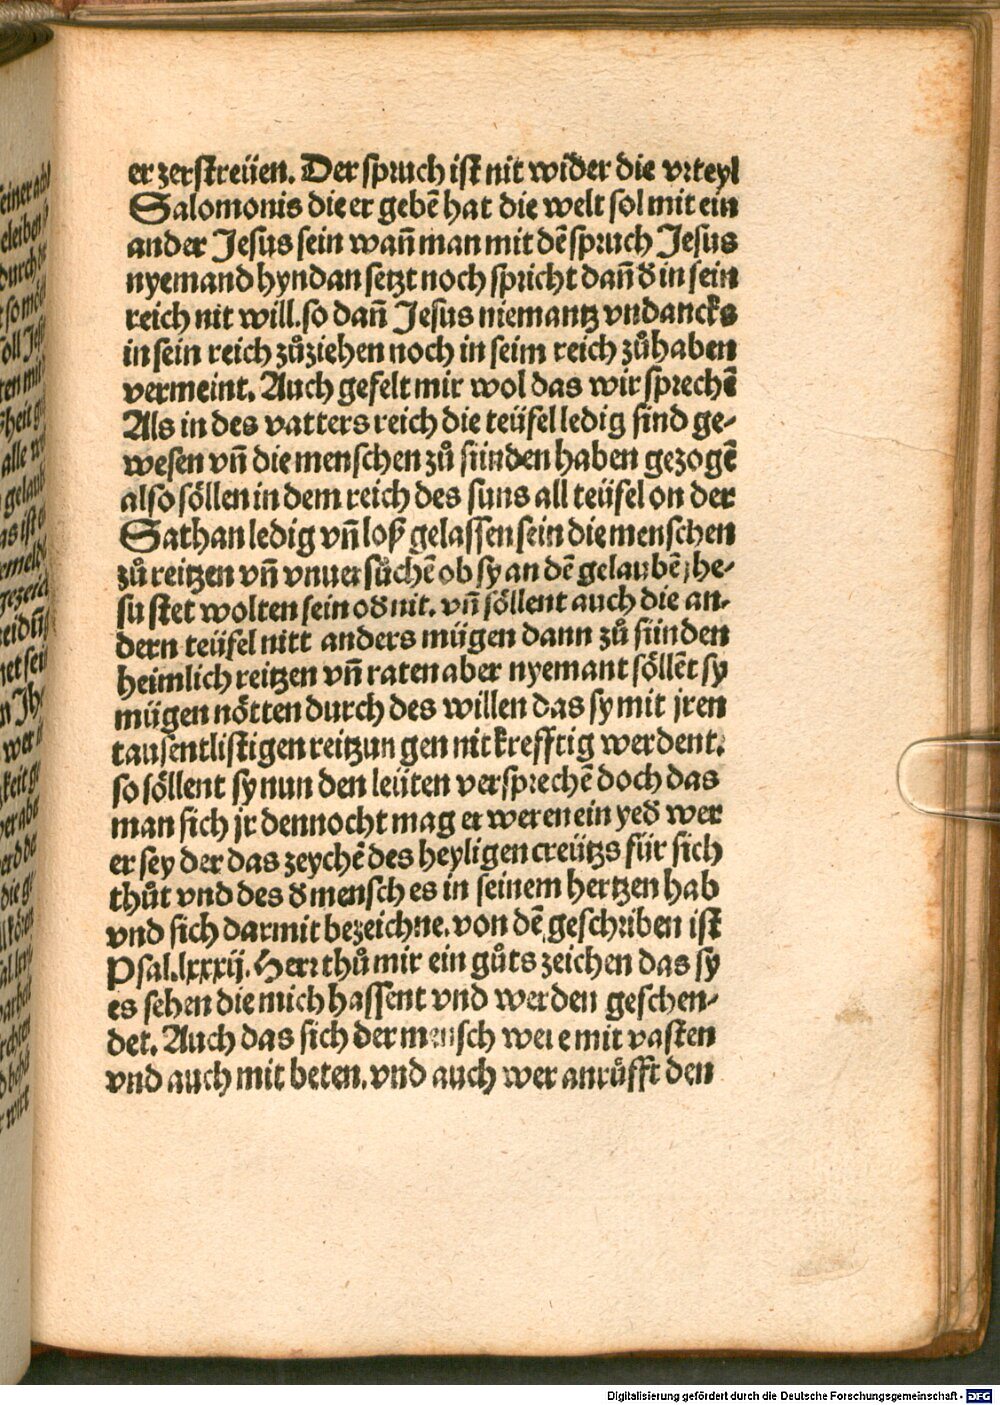 er zerstreüen. Der spruch ist nit wider die vrteyl
Salomonis die er gebē hat die welt sol mit ein
ander Jesus sein wañ man mit dē spruch Jesus
nyemand hyndan setzt noch spricht dañ đ in sein
reich nit will. so dañ Jesus niemantz vndancks
in sein reich zůziehen noch in seim reich zůhaben
vermeint. Auch gefelt mir wol das wir sprechē
Als in des vatters reich die teüfel ledig sind ge-
wesen vñ die menschen zů sünden haben gezogē
also söllen in dem reich des suns all teüfel on der
Sathan ledig vñ loß gelassen sein die menschen
zů reitzen vñ vnuersůchē ob sy an dē gelaubē jhe-
su stet wolten sein ođ nit. vñ söllent auch die an-
dern teüfel nitt anders mügen dann zů sünden
heimlich reitzen vñ raten aber nyemant söllēt sy
mügen nötten durch des willen das sy mit jren
tausentlistigen reitzungen nit krefftig werdent.
so söllent sy nun den leüten versprechē doch das
man sich jr dennocht mag erweren ein yeđ wer
er sey der das zeychē des heyligen creützs für sich
thůt vnd des đ mensch es in seinem hertzen hab
vnd sich darmit bezeichne. von dē geschriben ist
Psal. lxxxij. Herr thů mir ein gůts zeichen das sy
es sehen die mich hassent vnd werden geschen-
det. Auch das sich der mensch were mit vasten
vnd auch mit beten. vnd auch wer anrůfft den
Digitalisierung gefördert durch die Deutsche Forschungsgemeinschaft - DFG